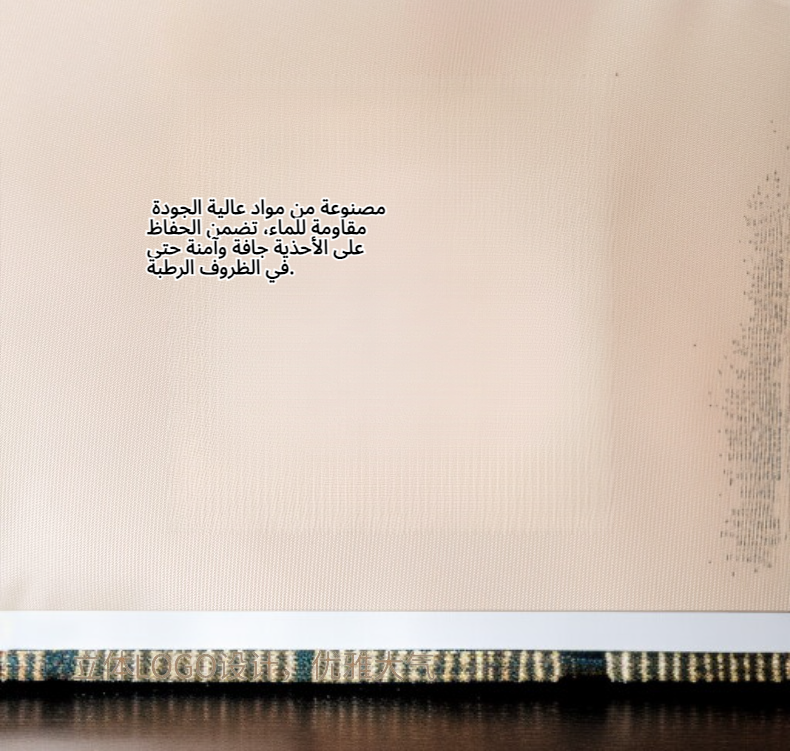 مصنوعة من مواد عالية الجودة
مقاومة للماء، تضمن الحفاظ
على الأحذية جافة وآمنة حتى
في الظروف الرطبة.
立体LOGO设计，优雅大气